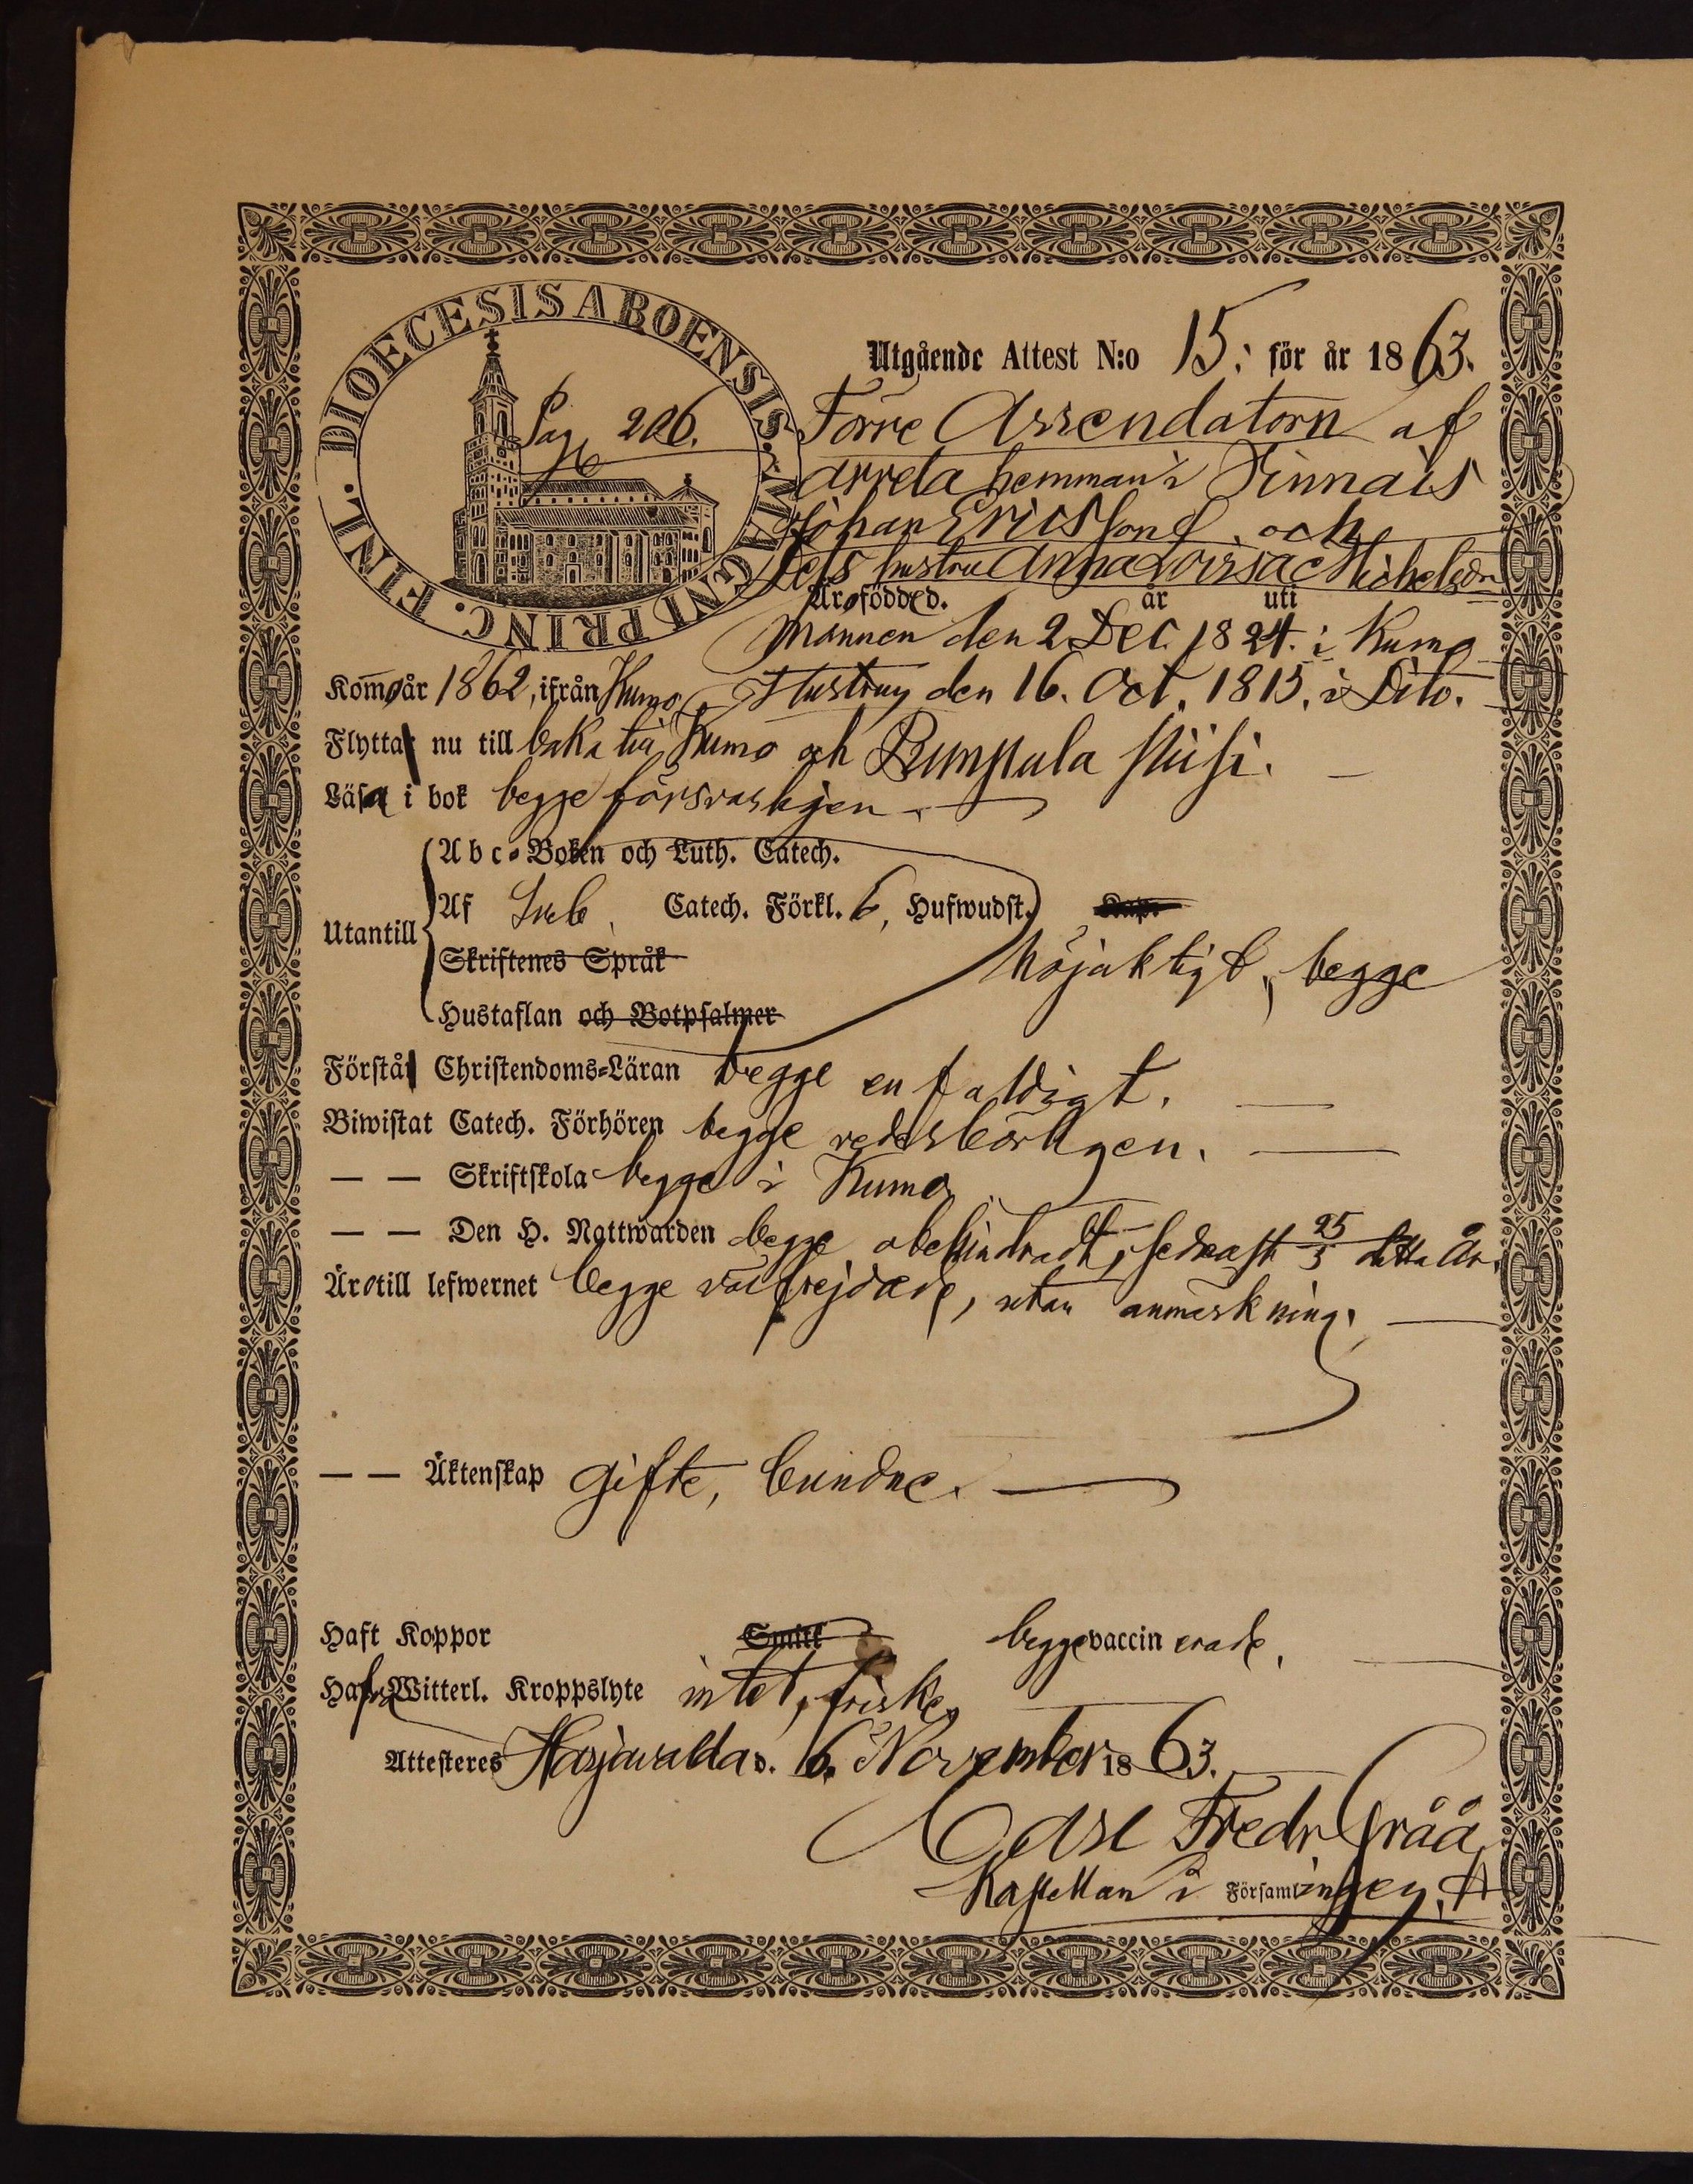 DIOECESIS ABOENSIS. MAGNI PRINC. FINL.
Pag 206.
Utgående Attest N:o 15, för år 1863.
Förre Arrendatorn af
Arreta hemman i Sinnais
Johan Ericsson och
Dess hustru Anna Lovisa Michelsdr
Äro födde d. år uti
Mannen den 2 Dec. 1824. i Kumo
Komo år 1862, ifrån Kumo Hustrun den 16. Oct. 1815. i Dito.
Flytta nu till baka till Kumo och
Läsa i bok begge försvarligen
Abc-Boken och Luth. Catech.
Af Catech. Förkl. 6, Hufwudst. Kap.
Utantill
Skriftenes Språk
nöjaktigt, begge
Hustaflan och Botpsalmer
Förstå Christendoms-Läran begge enfaldigt.
Biwistat Catech. Förhören begge redebörligen.
— — Skriftskola begge i Kumo
— — Den H. Nattwarden begge obehindradt, sednast 25/5 detta år.
Äro till lefwernet begge välfrejdade, utan anmärkning.
— — Äktenskap gifte, bundne.
Haft Koppor Smitt begge vaccinerade.
Hafva Witterl. Kroppslyte intet, friske,
Attesteres Harjavalda d. 6. November 1863.
Carl Fredr Gråå
Kapellan i Församlingen.